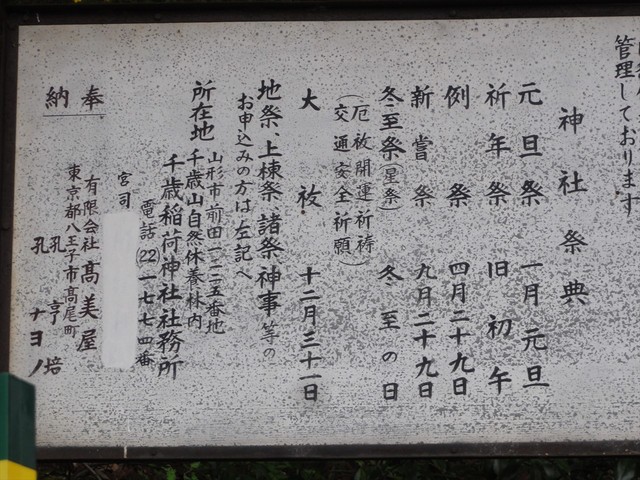 管理しております
神社祭典
元旦祭 一月元旦
祈年祭 旧初午
例祭 四月二十九日
新嘗祭 九月二十九日
冬至祭(星祭) 冬至の日
(厄祓開運祈祷
交通安全祈願)
大祓 十二月三十一日
地祭、上棟祭、諸祭神事等の
お申込みの方は左記へ
所在地 山形市前田一ー二五番地
千歳山自然休養林内
千歳稲荷神社社務所
電話(22)一七七四番
宮司
奉納
有限会社 高美屋
東京都八王子市高尾町
孔 亨培
孔 ナヨノ